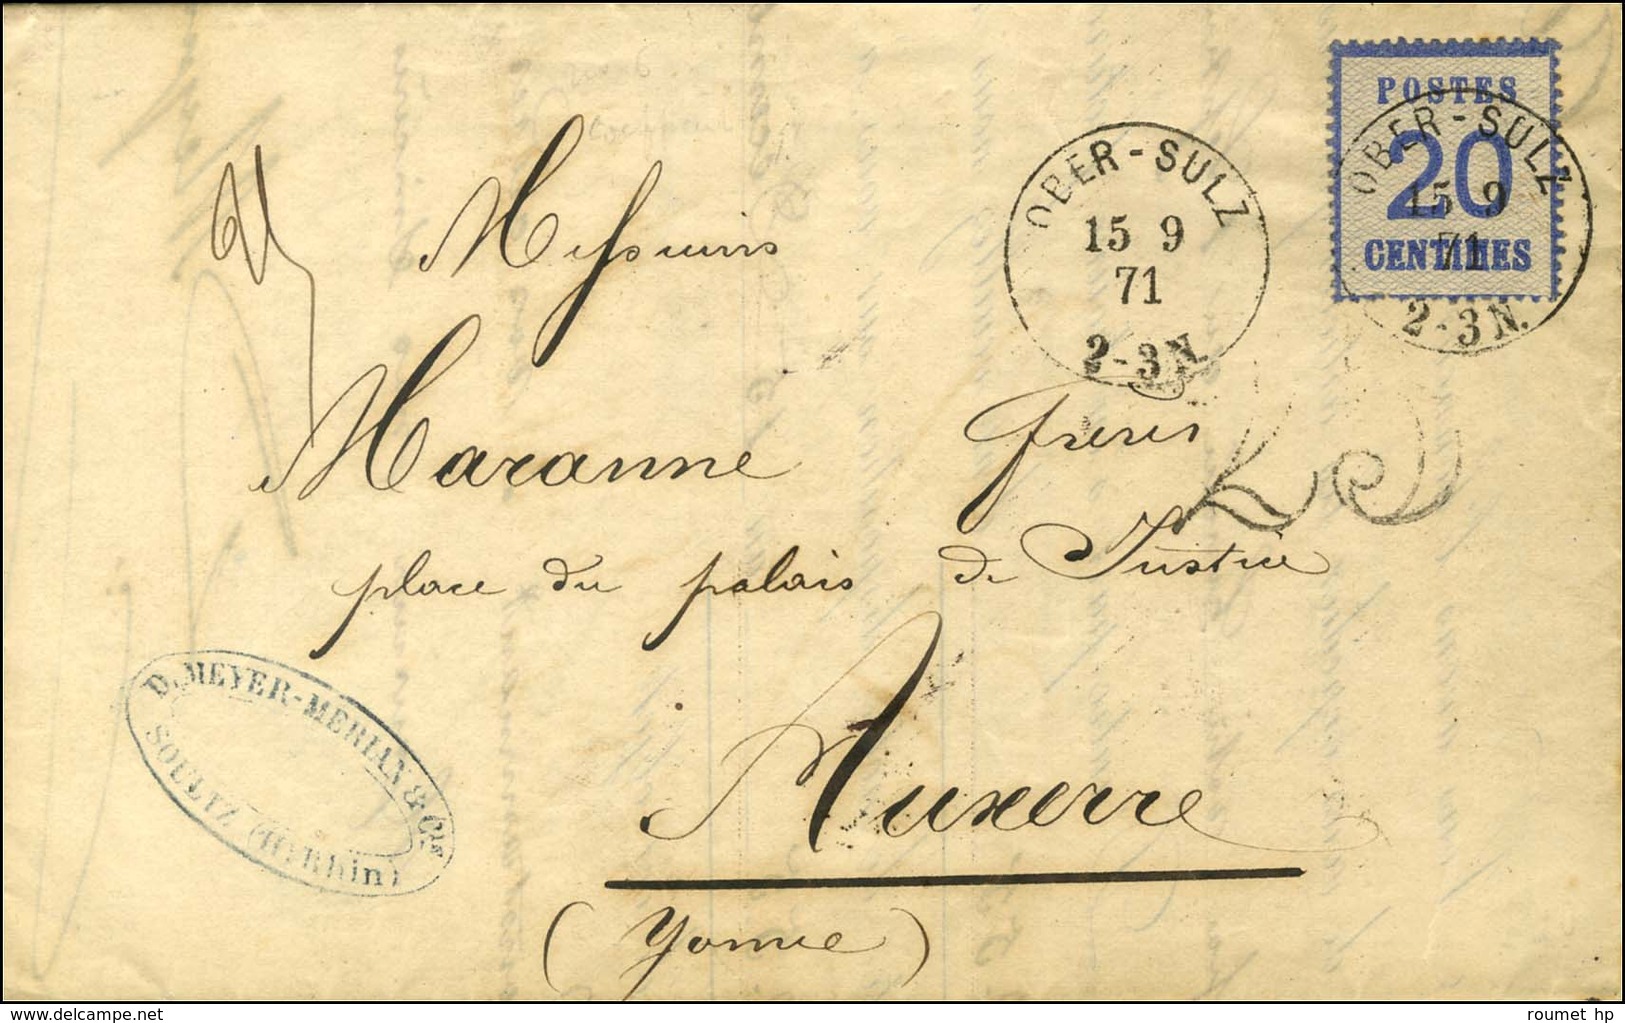 POSTES
20
CENTIMES
OBER-SULZ
15 9
71
2-3 N.
OBER-SULZ
15 9
71
2-3 N.
Messieurs
Maranne frères
place du palais de Justice
Auxerre
(Yonne)
D. MEYER-MERIAN & Cie
SOULTZ (Ht Rhin)
delcampe.net
roumet hp